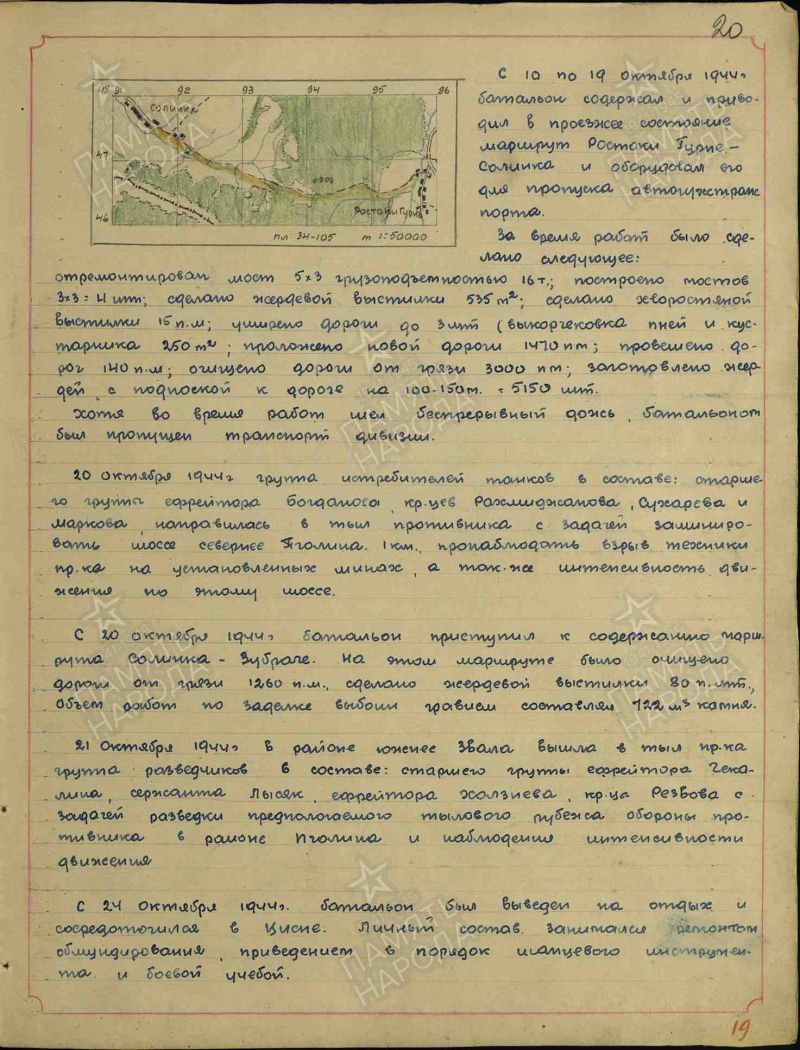 20
С 10 по 19 октября 1944г
батальон содержал и приво-
дил в проезжее состояние
маршрут Ростоки Гурне -
Солинка и оборудовал его
для пропуска автогужтранс
порта.
За время работ было сде-
лано следующее:
91 92 93 94 95 96
Солинка
47
Ростоки Гурне
46
пл 34-105 м 1:50000
отремонтирован мост 5х3 грузоподъемностью 16т.; построено мостов
3х3 = 4 шт; сделано жердевой выстилки 535 м²; сделано хворостяной
выстилки 15 п.м; уширено дороги до 3 мт (выкорчековка пней и кус-
тарника 250 м²; проложено новой дороги 1470 пм; провешено до-
рог 140 п.м; очищено дороги от грязи 3000 пм; заготовлено жер-
дей с подноской к дороге на 100-150м. = 5150 шт.
Хотя во время работ шел беспрерывный дождь, батальоном
был пропущен транспорт дивизии.
20 октября 1944г группа истребителей танков в составе: старше-
го группы ефрейтора Богданова, кр.цев Рахмиджанова, Сухарева и
Маркова направилась в тыл противника с задачей заминиро-
вать шоссе севернее Пголина. 1км., пронаблюдать взрыв техники
пр.ка на установленных минах, а так.же интенсивность дви-
жения по этому шоссе.
С 20 октября 1944г батальон приступил к содержанию марш.
рута Солинка - Зубраче. На этом маршруте было очищено
дороги от грязи 1260 п.м., сделано жердевой выстилки 80 п.мт.,
Объем работ по заделке выбоин гравием составлял 722 м³ камня.
21 Октября 1944г в районе южнее Звала вышла в тыл пр.ка
группа разведчиков в составе: старшего группы ефрейтора Чека-
лина, сержанта Лысяк, ефрейтора Холзиева, кр.ца Резвова с
задачей разведки предпологаемого тылового рубежа обороны про-
тивника в районе Пголина и наблюдения интенсивности
движения
С 24 октября 1944г. батальон был выведен на отдых и
сосредоточился в Цисне. Личный состав занимался ремонтом
обмундирования, приведением в порядок шанцевого инструмен-
та и боевой учебой.
19
ПАМЯТЬ
НАРОДА